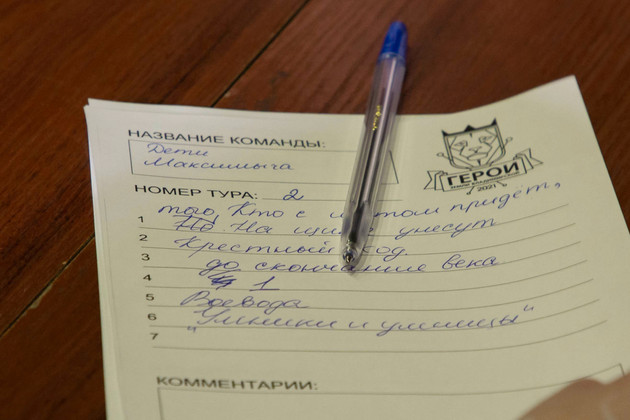 НАЗВАНИЕ КОМАНДЫ:
Дети
Максимыча
ГЕРОИ
2021
НОМЕР ТУРА: 2
того, Кто с придёт,
1 На унесут
2 Крестный ход.
3 до скончание века
4 1
5 Воевода
6 "Умники и умницы"
7
КОММЕНТАРИИ: